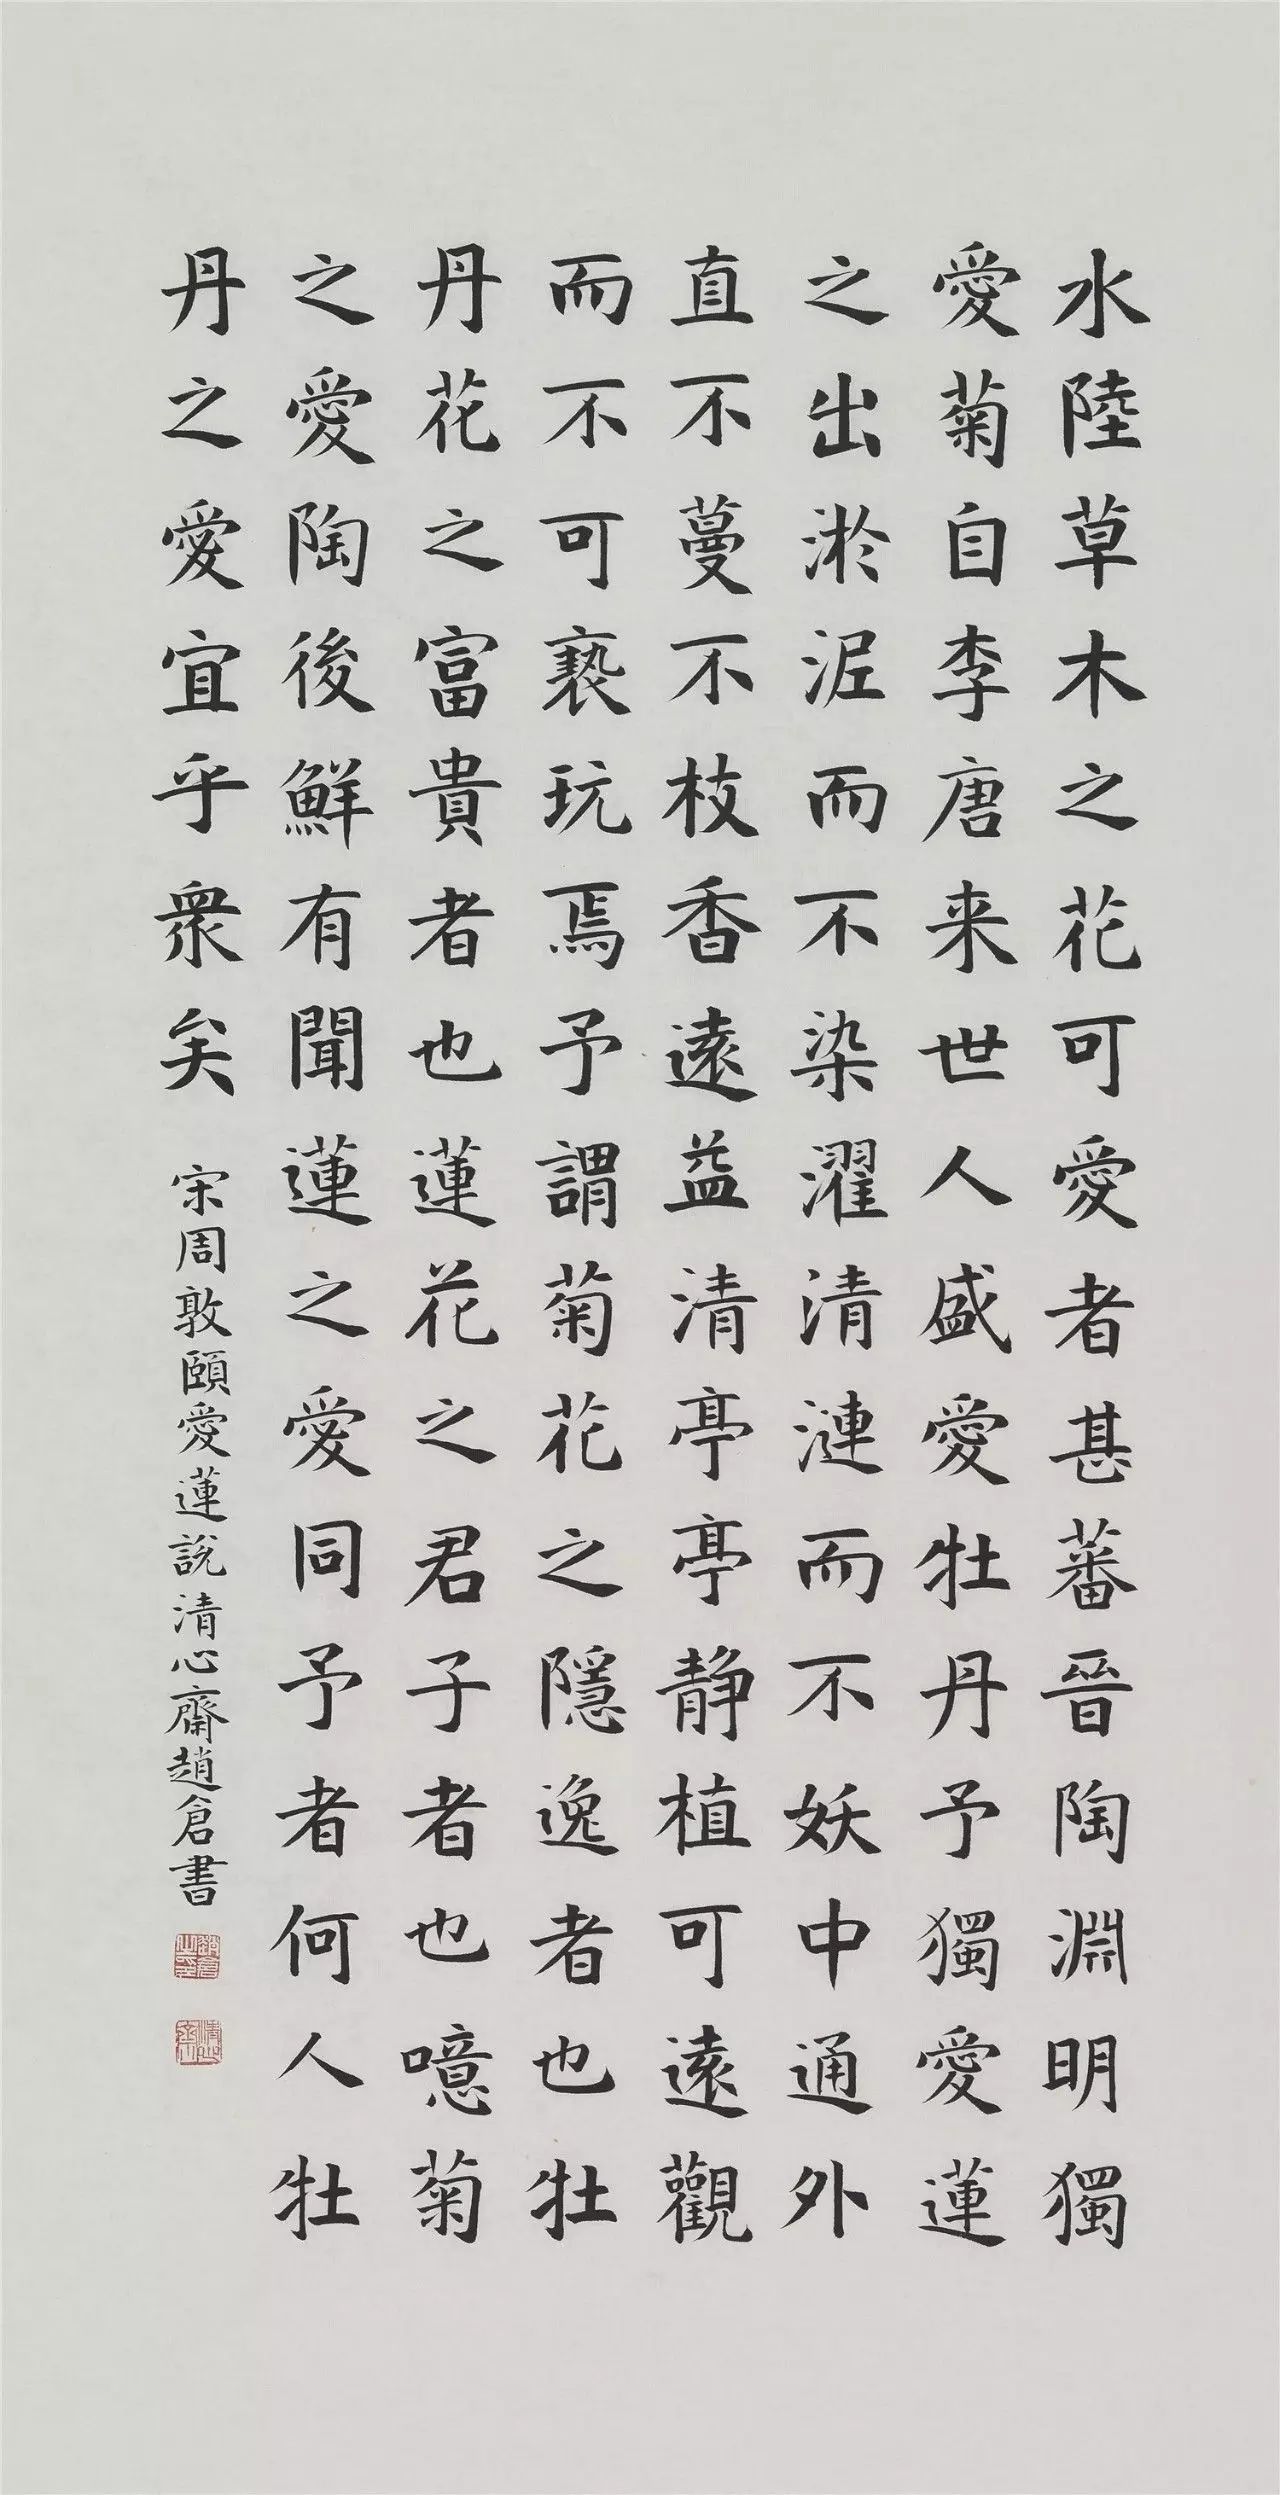 水陸草木之花可愛者甚蕃晉陶淵明獨
愛菊自李唐来世人盛愛牡丹予獨愛蓮
之出淤泥而不染濯清漣而不妖中通外
直不蔓不枝香遠益清亭亭静植可遠觀
而不可褻玩焉予謂菊花之隱逸者也牡
丹花之富貴者也蓮花之君子者也噫菊
之愛陶後鮮有聞蓮之愛同予者何人牡
丹之愛宜乎衆矣
宋周敦頤愛蓮説清心齋趙倉書